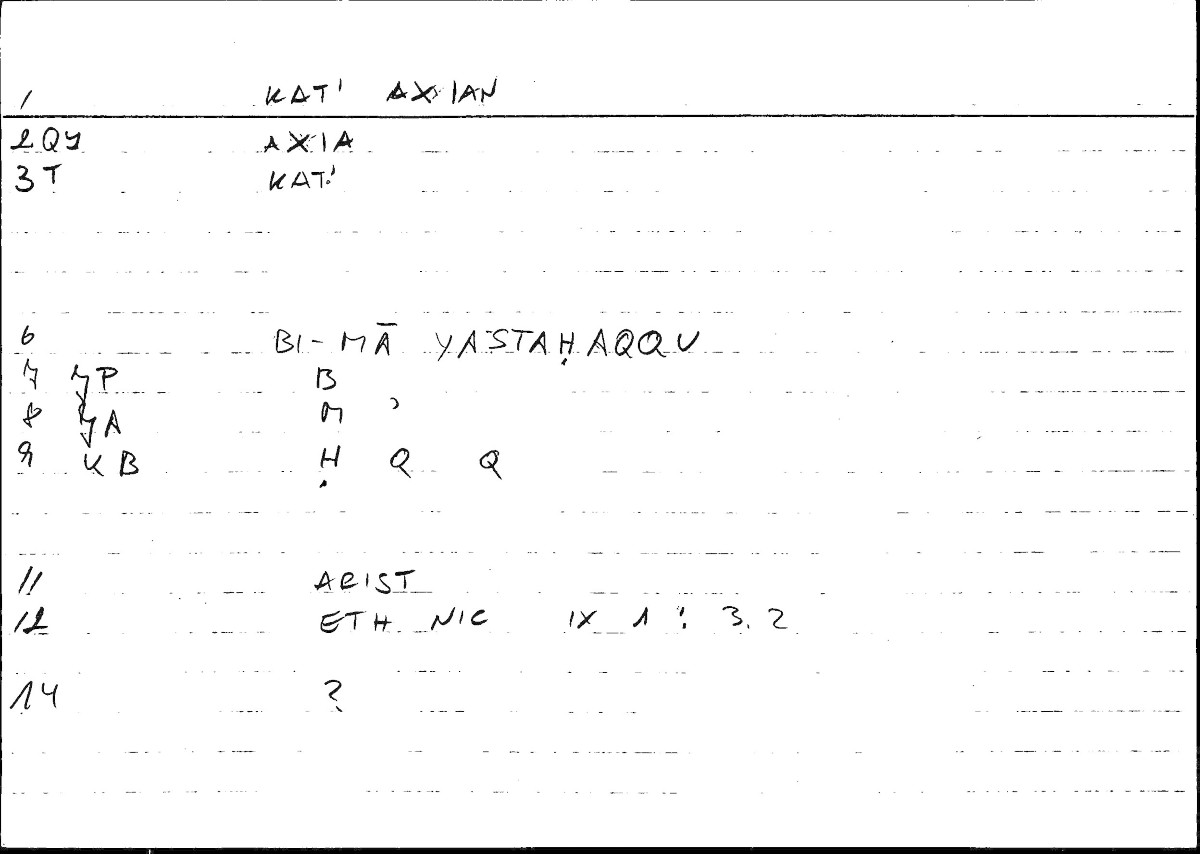 1 KAT' AXIAN
2 QY AXIA
3 T KAT'
6 BI-MĀ YASTAḤAQQU
7 YP B
8 YA M ʾ
9 KB Ḥ Q Q
11 ARIST
12 ETH NIC IX 1 : 3.2
14 ?